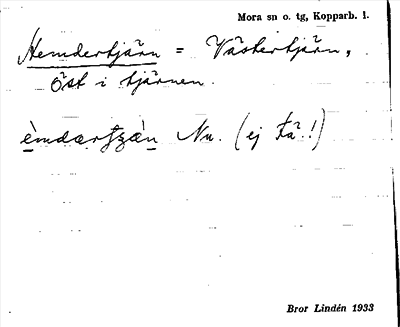 Mora sn o. tg, Kopparb. l.
Hemdertjärn = Västertjärn,
öst i tjärnen.
Nu. (ej !)
Bror Lindén 1933